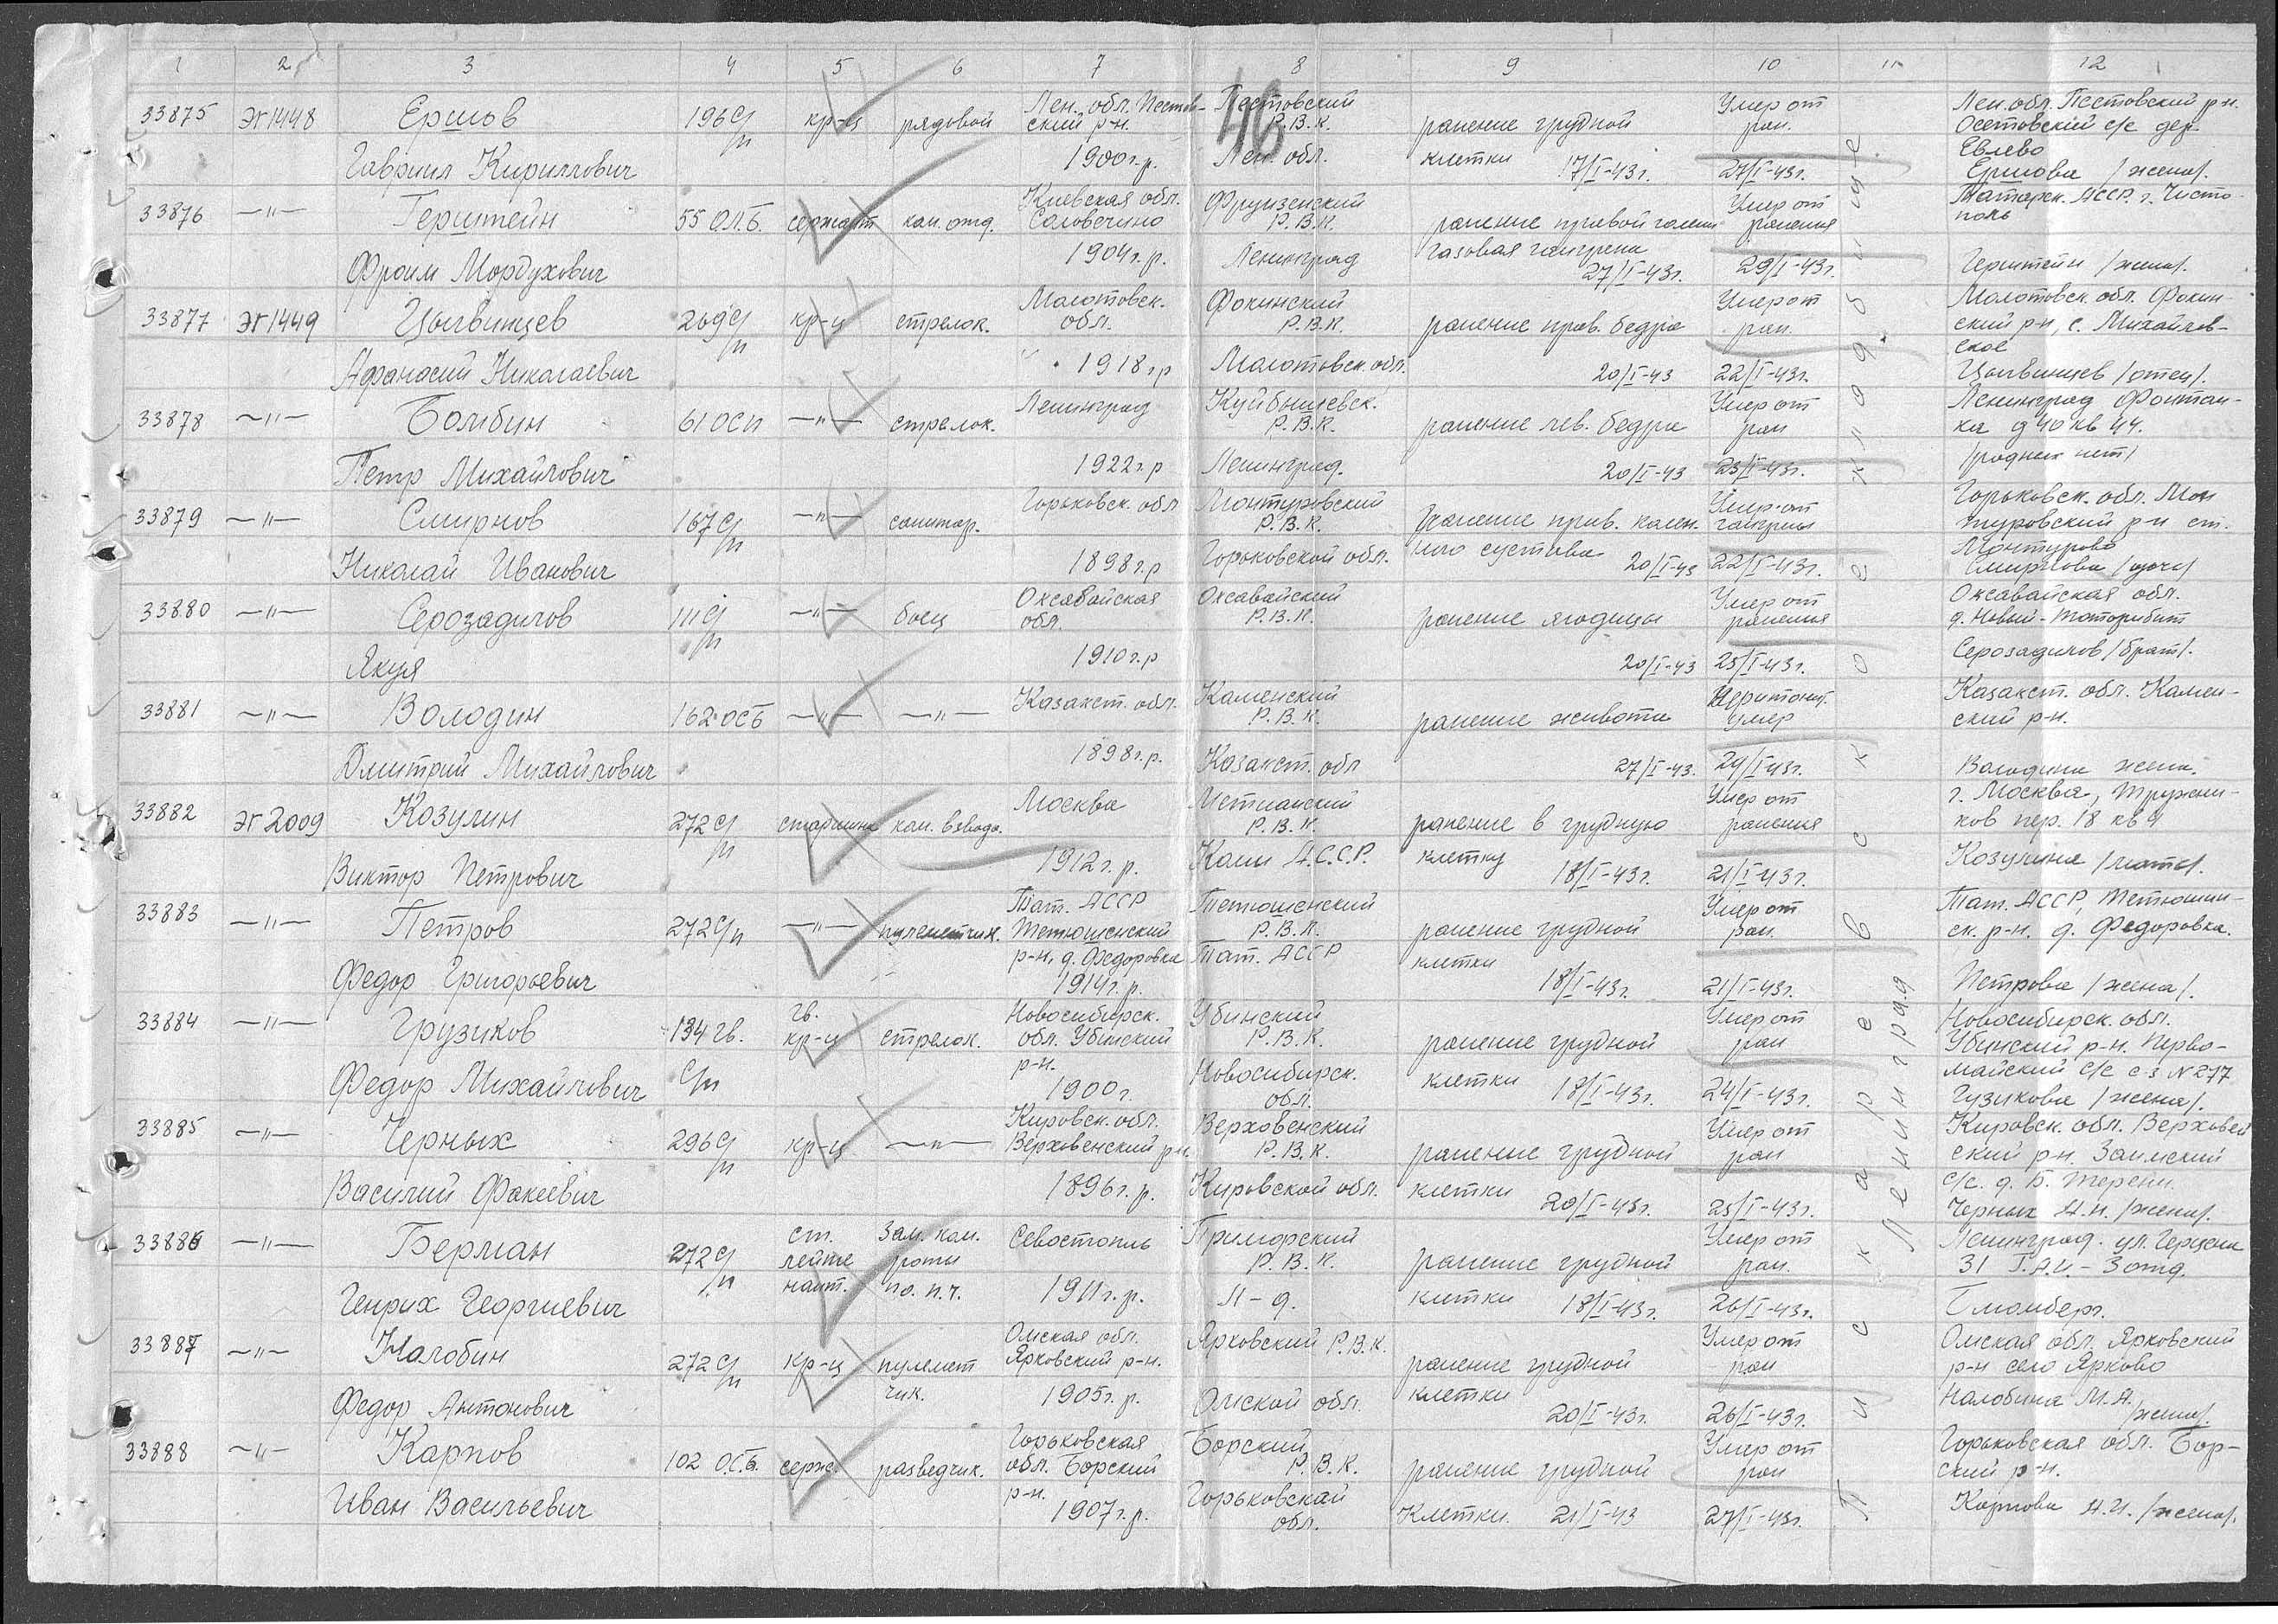 1 2 3 4 5 6 7 8 9 10 11 12
46
33875 ЭГ1448 Ершов 196 с/п кр-ц рядовой Лен. обл. Пестов- Пестовский Р.В.К. ранение грудной Умер от ран. Лен. обл. Пестовский р-н.
ский р-н. Осетовский с/с дер.
Гавриил Кириллович 1900 г.р. Лен. обл. клетки 17/I-43г. 27/I-43г. Евлево
Ершова /жена/.
33876 —"— Герштейн 55 О.Л.Б. сержант ком. отд. Киевская обл. Фрунзенский Р.В.К. ранение правой голени Умер от ранения Татарск. АССР. г. Чисто-
Словечино поль
Фроим Мордухович 1904 г.р. Ленинград газовая гангрена 27/I-43г. 29/I-43г. Герштейн /жена/.
33877 ЭГ1449 Цывинцев 269 с/п кр-ц стрелок. Молотовск. обл. Фокинский Р.В.К. ранение прав. бедра Умер от ран. Молотовск. обл. Фокин-
ский р-н, с. Михайлов-
ское
Афанасий Николаевич 1918 гр Молотовск. обл. 20/I-43 22/I-43г. Цывинцев /отец/.
33878 —"— Бомбин 61 ОСП —"— стрелок. Ленинград Куйбышевск. Р.В.К. ранение лев. бедра Умер от ран Ленинград Фонтан-
ка д 40 кв 44.
Петр Михайлович 1922 г.р Ленинград. 20/I-43 23/I-43г. /родных нет/
33879 —"— Смирнов 167 с/п —"— санитар. Горьковск. обл Монтуровский Р.В.К. ранение прав. колен- Умер от гангрены Горьковск. обл. Мон
туровский р-н ст.
Николай Иванович 1898 г.р Горьковской обл. ного сустава 20/I-43 22/I-43г. Монтурово
Смирнова /дочь/
33880 —"— Серозадилов 111 с/п —"— боец Оксавайская обл. Оксавайский Р.В.К. ранение ягодицы Умер от ранения Оксавайская обл.
д. Новый-
Якуя 1910 г.р 20/I-43 25/I-43г. Серозадилов /брат/.
33881 —"— Володин 162 ОСБ —"— —"— Казакст. обл. Каменский Р.В.К. ранение живота Перитонит. умер Казакст. обл. Камен-
ский р-н.
Дмитрий Михайлович 1898 г.р. Казакст. обл 27/I-43. 29/I-43г. Володина жена.
33882 ЭГ2009 Козулин 272 с/п старшина ком. взвода. Москва Р.В.К. ранение в грудную Умер от ранения г. Москва, Тружени-
ков пер. 18 кв 4
Виктор Петрович 1912 г.р. Коми А.С.С.Р. клетку 18/I-43г. 21/I-43г. Козулина /мать/.
33883 —"— Петров 272 с/п —"— пулеметчик. Тат. АССР Тетюшенский Р.В.К. ранение грудной Умер от ран. Тат. АССР, Тетюшин-
Тетюшенский ск. р-н. д. Федоровка.
р-н, д. Федоровка Тат. АССР клетки
Федор Григорьевич 1914 г.р. 18/I-43г. 21/I-43г. Петрова /жена/.
33884 —"— Грузиков 134 гв. с/п гв. кр-ц стрелок. Новосибирск. Убинский Р.В.К. ранение грудной Умер от ран Новосибирск. обл.
обл. Убинский Убинский р-н. Перво-
р-н. майский с/с с-з N 277
Федор Михайлович 1900 г. Новосибирск. обл. клетки 18/I-43г. 24/I-43г. Гузикова /жена/.
33885 —"— Черных 296 с/п кр-ц —"— Кировск. обл. Верховенский Р.В.К. ранение грудной Умер от ран Кировск. обл. Верховен
Верховенский р-н. ский р-н. Заимский
с/с. д. Б. Терени.
Василий Фокеевич 1896 г.р. Кировской обл. клетки 20/I-43г. 25/I-43г. Черных А.Н. /жена/.
33886 —"— Берман 272 с/п ст. лейте нант. Зам. ком. роты по. п.ч. Севостополь Приморский Р.В.К. ранение грудной Умер от ран. Ленинград. ул. Герцена
31 Г.А.И.-3 отд.
Генрих Георгиевич 1911 г.р. Л-д. клетки 18/I-43г. 26/I-43г. Блюмберг.
33887 —"— Налобин 272 с/п кр-ц пулемет чик. Омская обл. Ярковский Р.В.К. ранение грудной Умер от ран Омская обл. Ярковский
Ярковский р-н. р-н село Ярково
Федор Антонович 1905 г.р. Омской обл. клетки 20/I-43г. 26/I-43г. Налобина М.А. /жена/.
33888 —"— Карпов 102 О.С.Б. серж. разведчик. Горьковская Борский Р.В.К. ранение грудной Умер от ран Горьковская обл. Бор-
обл. Борский ский р-н.
р-н.
Иван Васильевич 1907 г.р. Горьковской обл. клетки. 21/I-43 27/I-43г. Карпова А.И. /жена/.
Пискаревское кладбище.
Ленинград